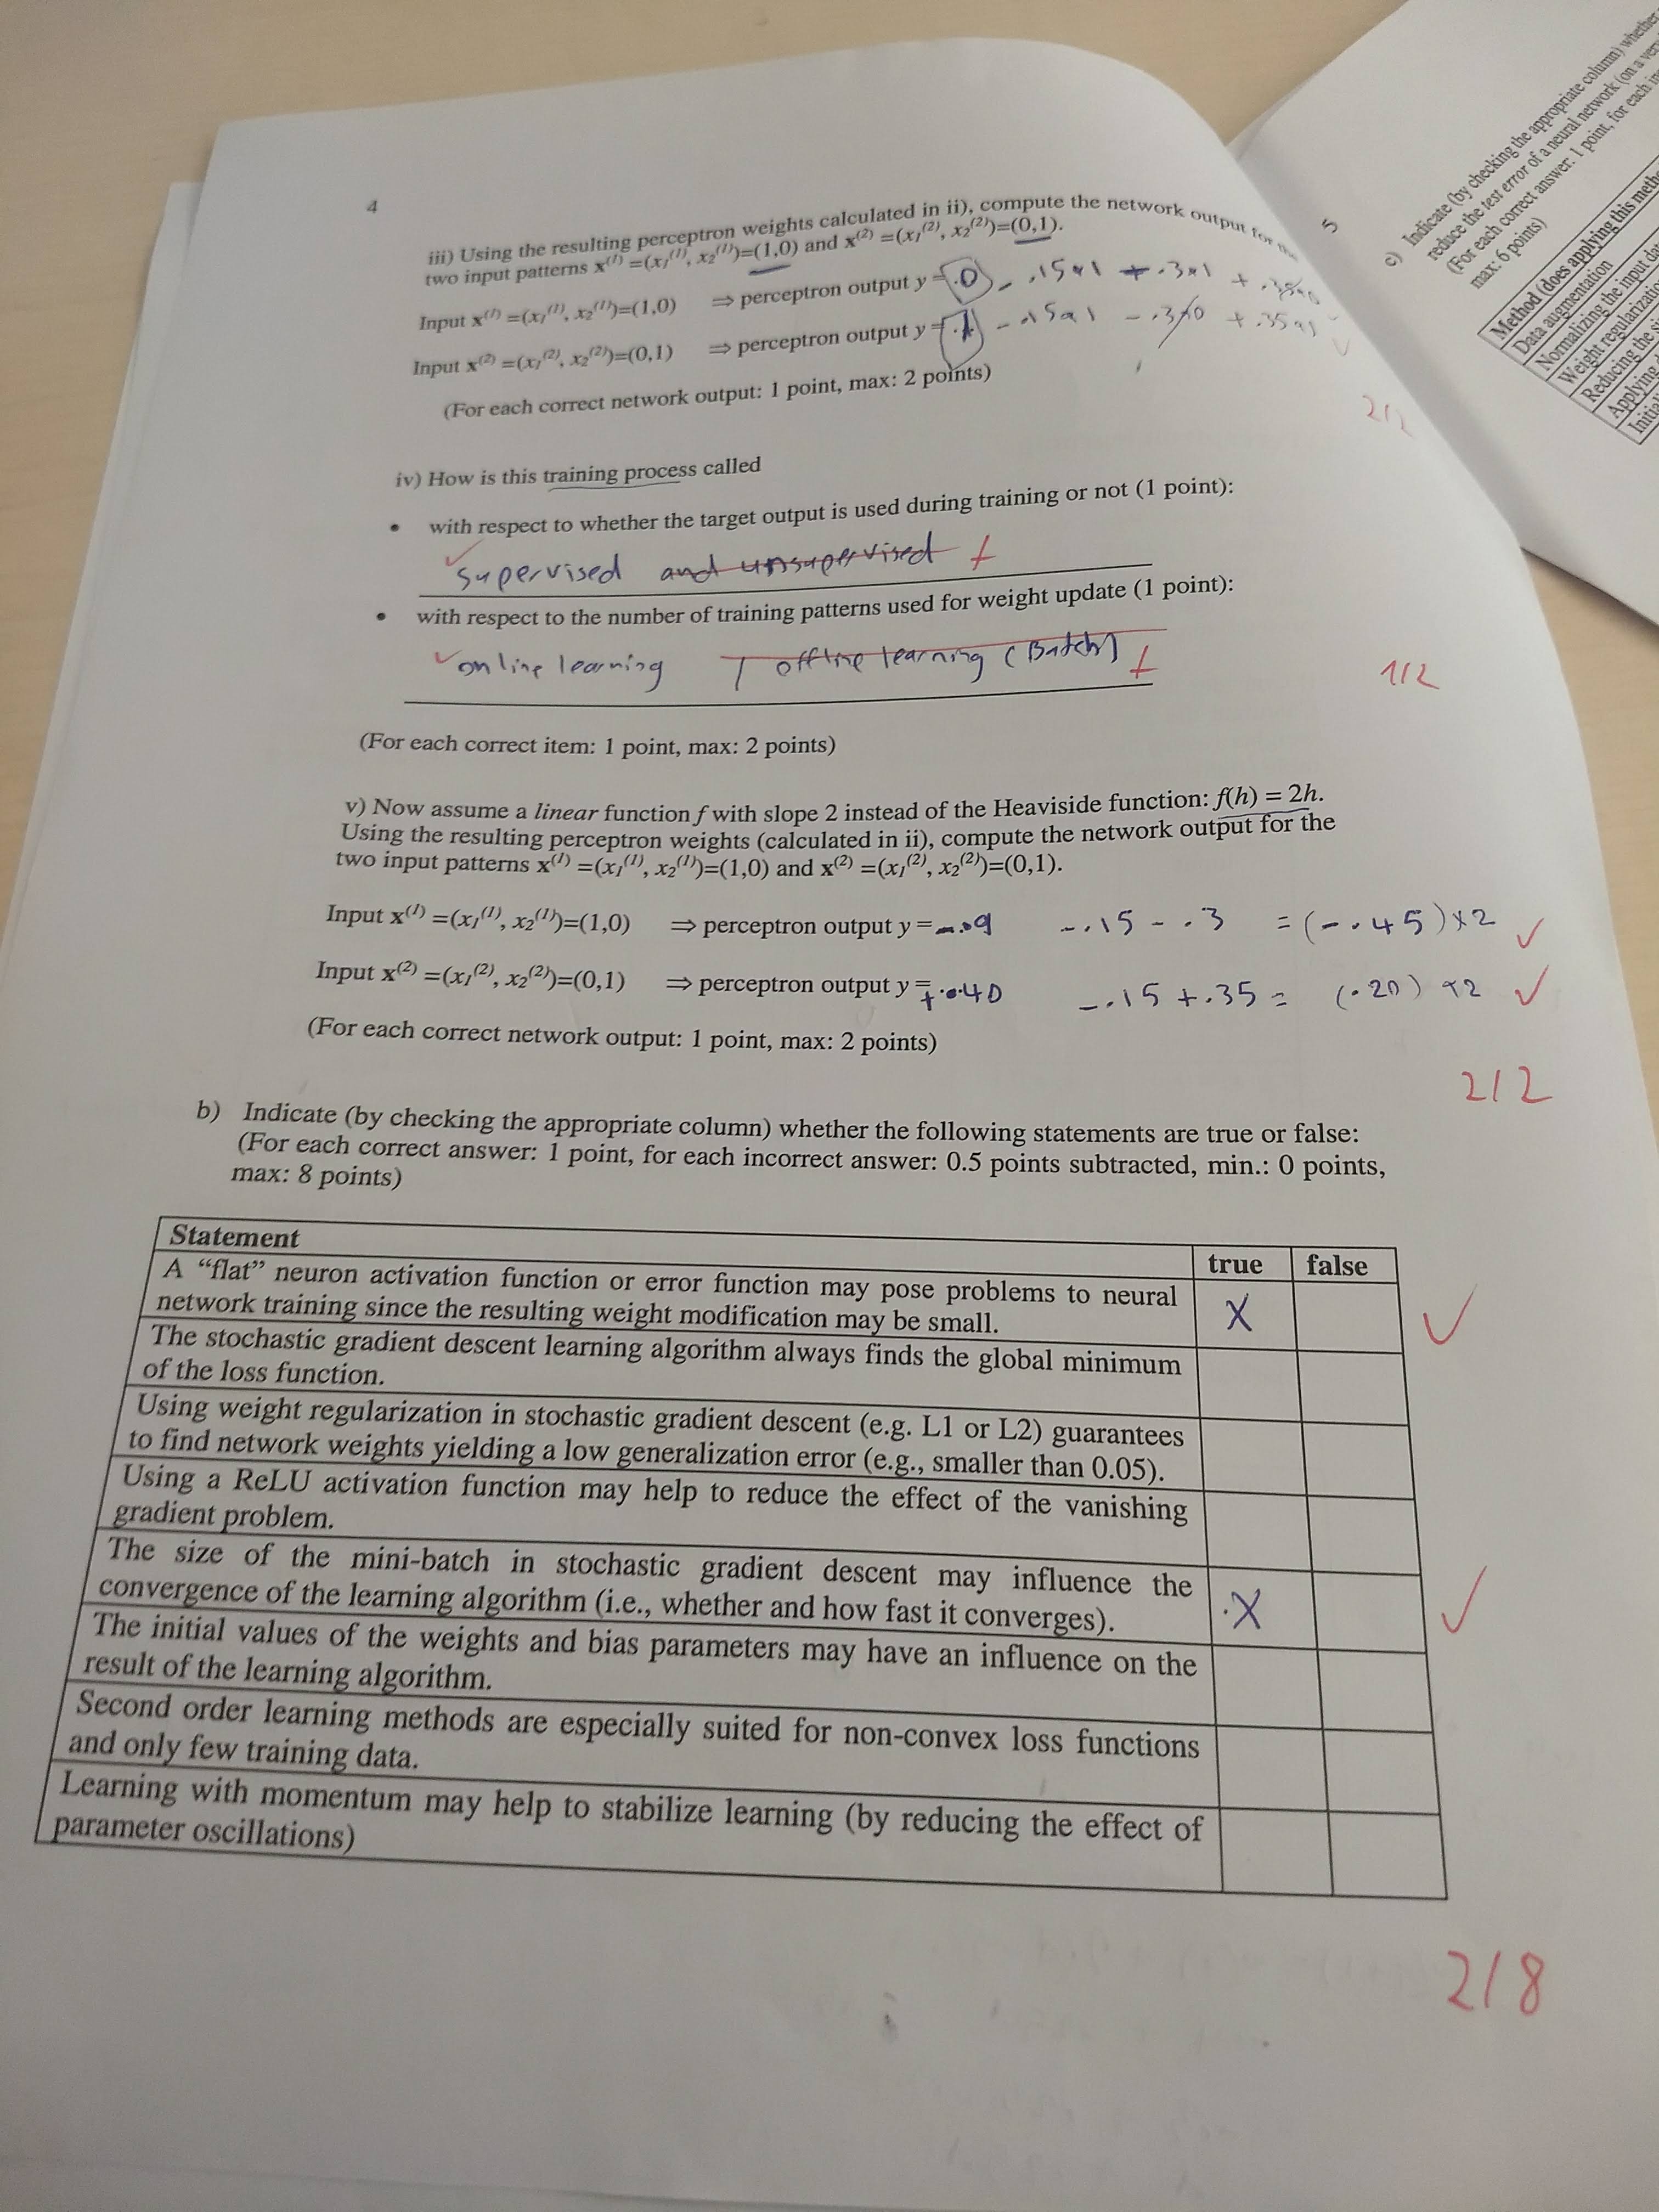 4
iii) Using the resulting perceptron weights calculated in ii), compute the network output for the
two input patterns x(1) =(x1(1), x2(1))=(1,0) and x(2) =(x1(2), x2(2))=(0,1).
Input x(1) =(x1(1), x2(1))=(1,0) ⇒ perceptron output y = .0 - .15x1 + .3x1 +
Input x(2) =(x1(2), x2(2))=(0,1) ⇒ perceptron output y = .1 - .15x1 - .3x0 + .35x1
(For each correct network output: 1 point, max: 2 points)
2/2
iv) How is this training process called
• with respect to whether the target output is used during training or not (1 point):
supervised and unsupervised f
• with respect to the number of training patterns used for weight update (1 point):
online learning / offline learning (Batch) f
1/2
(For each correct item: 1 point, max: 2 points)
v) Now assume a linear function f with slope 2 instead of the Heaviside function: f(h) = 2h.
Using the resulting perceptron weights (calculated in ii), compute the network output for the
two input patterns x(1) =(x1(1), x2(1))=(1,0) and x(2) =(x1(2), x2(2))=(0,1).
Input x(1) =(x1(1), x2(1))=(1,0) ⇒ perceptron output y = -.9 -.15 - .3 = (-.45)x2 ✓
Input x(2) =(x1(2), x2(2))=(0,1) ⇒ perceptron output y = +.40 -.15 +.35 = (.20) x2 ✓
(For each correct network output: 1 point, max: 2 points)
2/2
b) Indicate (by checking the appropriate column) whether the following statements are true or false:
(For each correct answer: 1 point, for each incorrect answer: 0.5 points subtracted, min.: 0 points,
max: 8 points)
Statement true false
A “flat” neuron activation function or error function may pose problems to neural
network training since the resulting weight modification may be small. X ✓
The stochastic gradient descent learning algorithm always finds the global minimum
of the loss function.
Using weight regularization in stochastic gradient descent (e.g. L1 or L2) guarantees
to find network weights yielding a low generalization error (e.g., smaller than 0.05).
Using a ReLU activation function may help to reduce the effect of the vanishing
gradient problem.
The size of the mini-batch in stochastic gradient descent may influence the
convergence of the learning algorithm (i.e., whether and how fast it converges). X ✓
The initial values of the weights and bias parameters may have an influence on the
result of the learning algorithm.
Second order learning methods are especially suited for non-convex loss functions
and only few training data.
Learning with momentum may help to stabilize learning (by reducing the effect of
parameter oscillations)
2/8
5
c) Indicate (by checking the appropriate column) whether
reduce the test error of a neural network (on a
(For each correct answer: 1 point, for each
max: 6 points)
Method (does applying this
Data augmentation
Normalizing the input
Weight
Reducing the
Applying